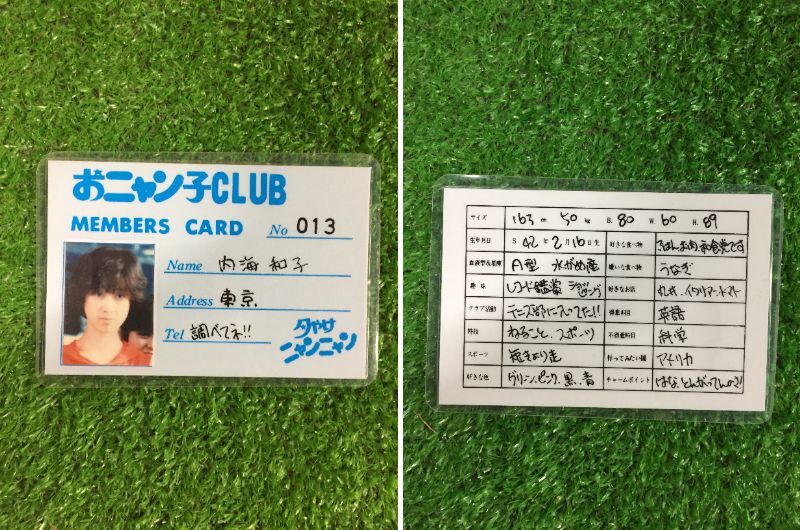 おニャン子CLUB
MEMBERS CARD No 013
Name 内海和子
Address 東京
Tel 調べてネ!!
夕やけニャンニャン
サイズ 163cm 50kg B. 80 W. 60 H. 89
生年月日 S 42年2月16日生 好きな食べ物 ごはん、お肉、和食党です
血液型&星座 A型 水がめ座 嫌いな食べ物 うなぎ
趣味 レコード鑑賞 ジョギング 好きなお店
クラブ活動 テニス部に入ってた!! 得意科目 英語
特技 ねること、スポーツ 不得意科目 科学
スポーツ 短きょり走 行ってみたい国 アメリカ
好きな色 グリーン、ピンク、黒、青 チャームポイント はな、とんがってんの?!